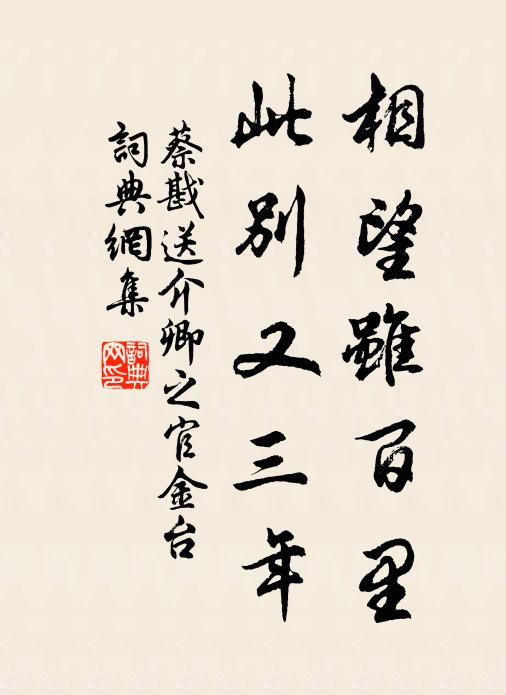 相望雖百里
此別又三年
蔡戡送介卿之官金台
詞典網集
詞典
网印